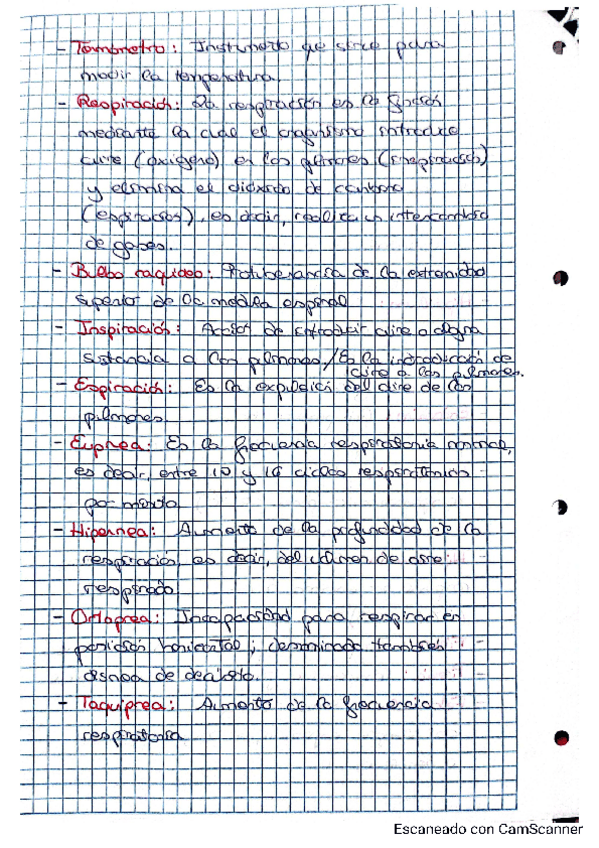 - Termómetro: Instrumento que sirve para
medir la temperatura.
- Respiración: La respiración es la función
mediante la cual el organismo introduce
aire (oxígeno) en los pulmones (inspiración)
y elimina el dióxido de carbono
(espiración), es decir, realiza un intercambio
de gases.
- Bulbo raquídeo: Protuberancia de la extremidad
superior de la médula espinal
- Inspiración: Acción de introducir aire o alguna
sustancia a los pulmones / Es la introducción de
aire a los pulmones.
- Espiración: Es la expulsión del aire de los
pulmones.
- Eupnea: Es la frecuencia respiratoria normal,
es decir, entre 10 y 16 ciclos respiratorios
por minuto.
- Hipernea: Aumento de la profundidad de la
respiración, es decir, del volumen de aire
respirado
- Ortopnea: Incapacidad para respirar en
posición horizontal; denominada también
disnea de decúbito.
- Taquipnea: Aumento de la frecuencia
respiratoria
Escaneado con CamScanner